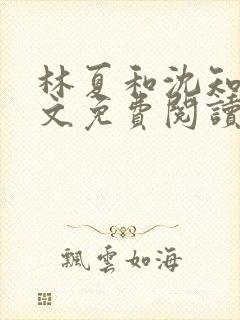 林夏和沈知
文免費閱讀
飄雲如海